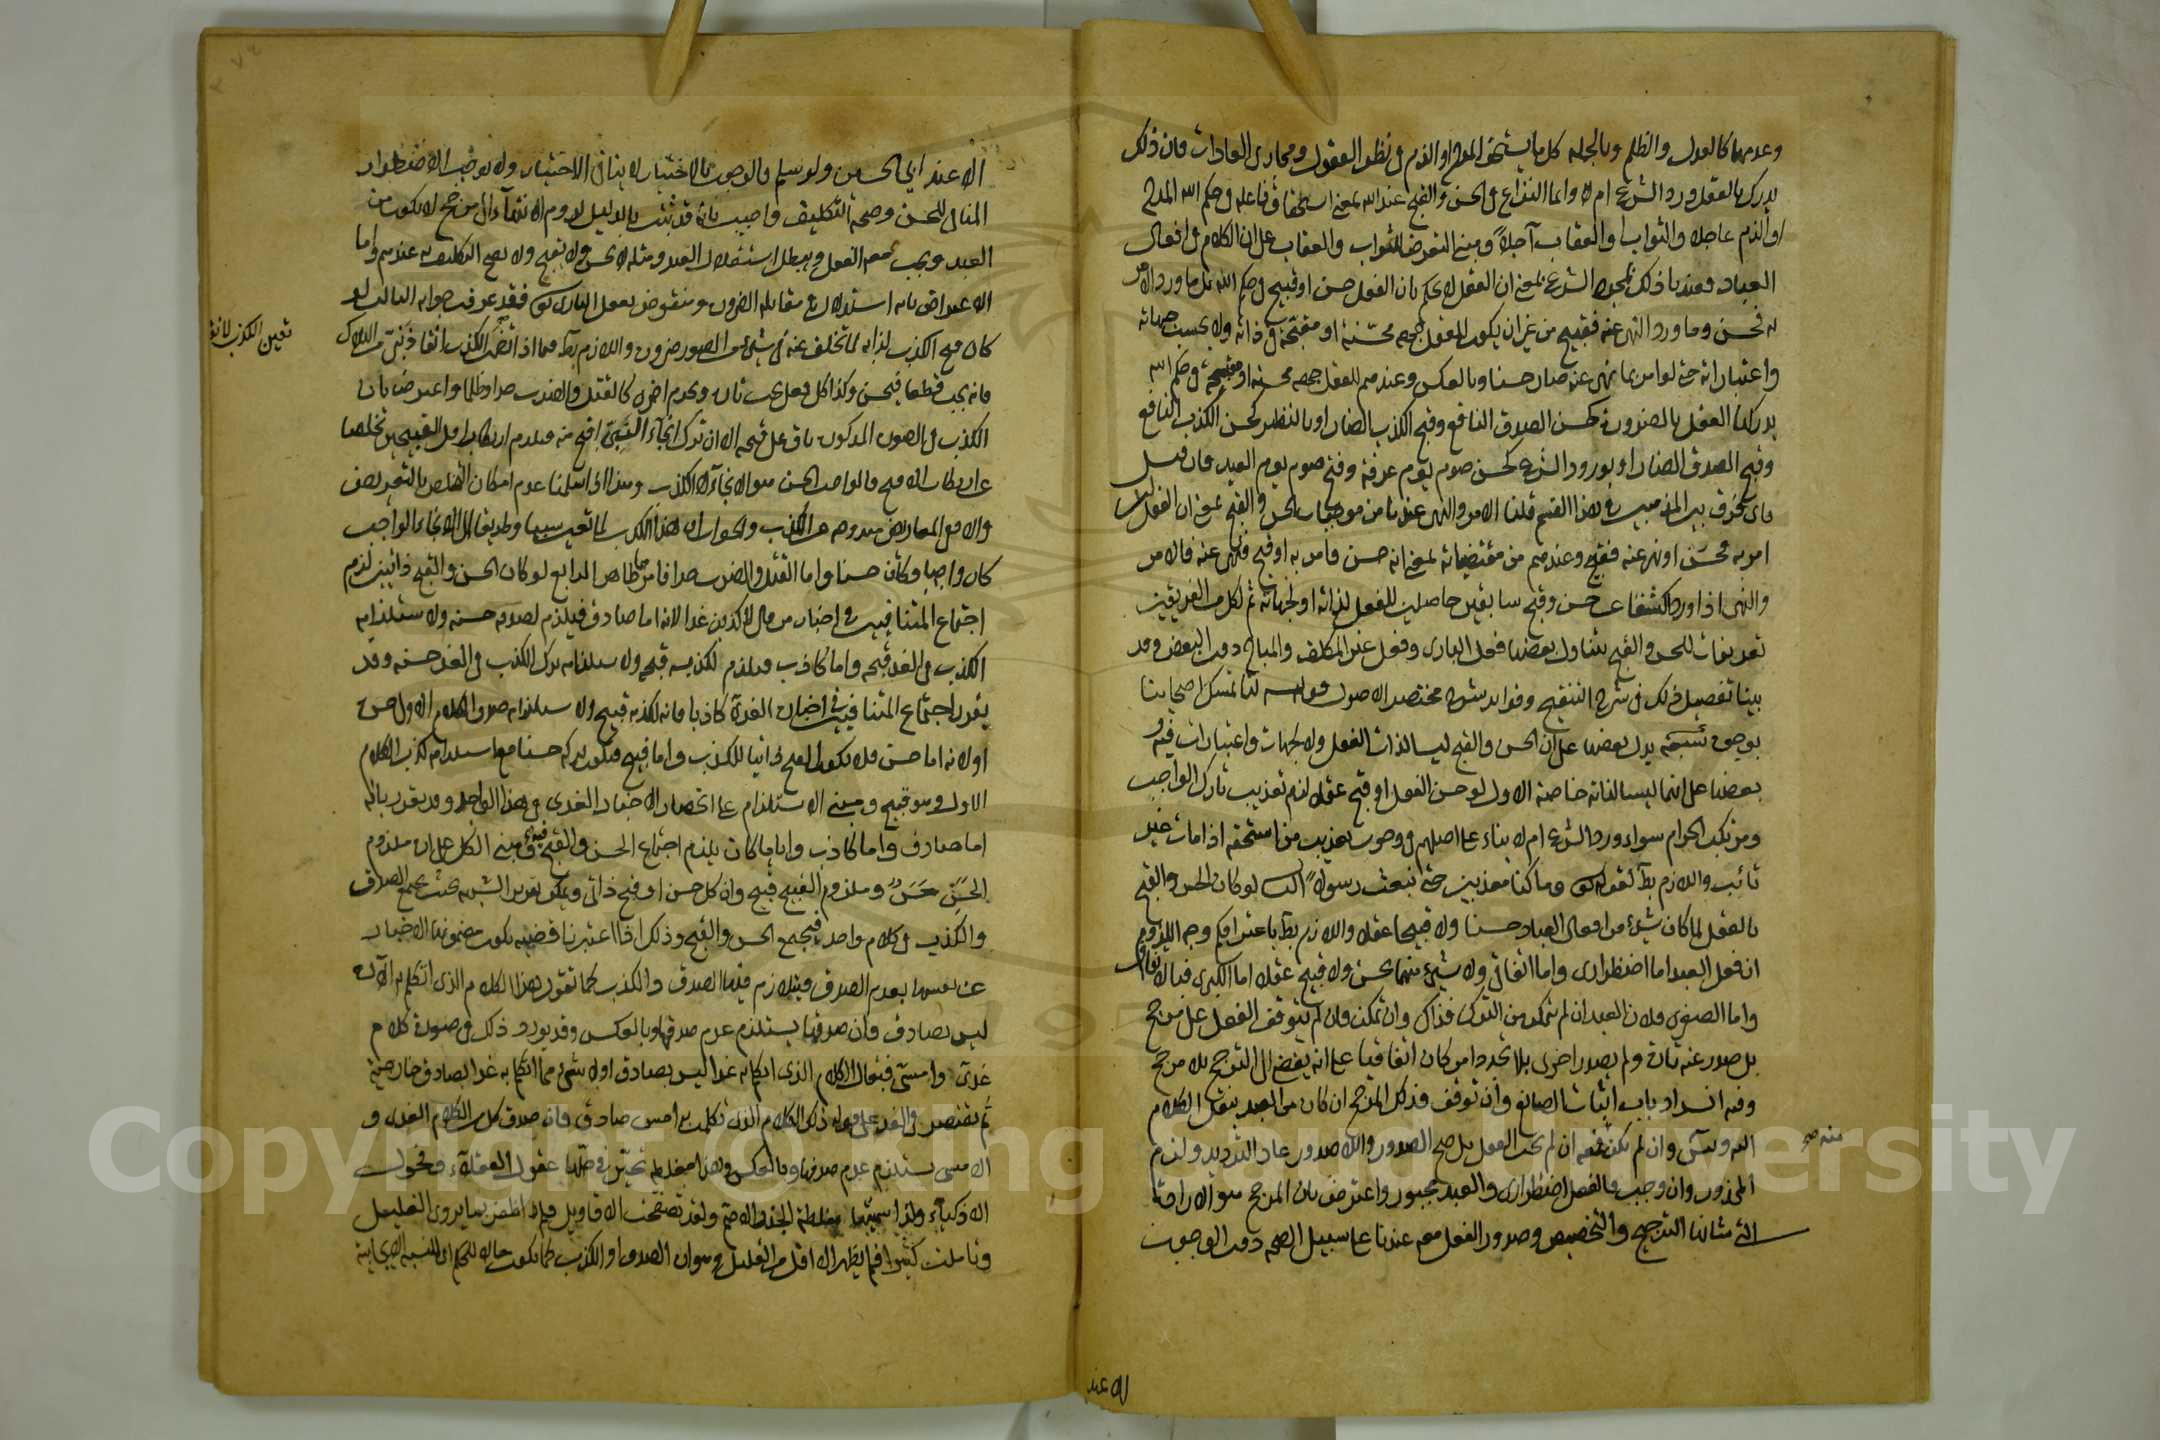 وعدمها كالعدل والظلم وبالجملة كل ما يستحق المدح او الذم في نظر العقول ومجاري العادات فان ذلك
يدرك بالعقل ورد الشرع ام لا وانما النزاع في الحسن والقبح عند الله بمعنى استحقاق فاعله في حكم الله المدح
او الذم عاجلا والثواب او العقاب آجلاً ومبنى التعرض للثواب والعقاب على ان الكلام في افعال
العباد فعندنا ذلك بمجرد الشرع بمعنى ان العقل لا يحكم بان الفعل حسن او قبيح في حكم الله بل ما ورد الامر
به فحسن وما ورد النهي عنه فقبيح من غير ان يكون للعقل جهة محسّنة او مقبّحة في ذاته ولا بحسب جهاته
واعتباراته حتى لو امر بما نهى عنه صار حسنا وبالعكس وعندهم للفعل جهة محسنة او مقبحة في حكم الله
يدركها العقل بالضرورة كحسن الصدق النافع وقبح الكذب الضار او بالنظر كحسن الكذب النافع
وقبح الصدق الضار او بورود الشرع كحسن صوم يوم عرفة وقبح صوم يوم العيد فان قيل
فاي فرق بين المذهبين في هذا القسم قلنا الامر والنهي عندنا من موجبات الحسن والقبح بمعنى ان الفعل
امر به فحسن او نهي عنه فقبح وعندهم من مقتضياته بمعنى انه حسن فامر به او قبح فنهي عنه فالامر
والنهي اذا وردا كشفا عن حسن وقبح سابقين حاصلين للفعل لذاته او لجهاته ثم لكل من الفريقين
تعريفات للحسن والقبح يتناول بعضها فعل الباري وفعل غير المكلف والمباح دون البعض وقد
بينا تفصيل ذلك في شرح التنقيح وفوايد شرح مختصر الاصول قوله لنا تمسك اصحابنا
بوجوه ستة يدل بعضها على ان الحسن والقبح ليسا لذات الفعل ولا لجهات واعتبارات فيه و
بعضها على انهما ليسا لذاته خاصة الاول لو حسن الفعل او قبح عقلا لزم تعذيب تارك الواجب
ومرتكب الحرام سواء ورد الشرع ام لا بناء على اصلهم في وجوب تعذيب من استحقه اذا مات غير
تائب واللازم بط لقوله تعالى وما كنا معذبين حتى نبعث رسولاً الثاني لو كان الحسن والقبح
بالعقل لما كان شيء من افعال العباد حسنا ولا قبيحا عقلا واللازم بط باعترافكم وجه اللزوم
ان فعل العبد اما اضطراري واما اتفاقي ولا شيء منهما بحسن ولا قبيح عقلا اما الكبرى فبالاتفاق
واما الصغرى فلان العبد ان لم يتمكن من الترك فذاك وان تمكن فان لم يتوقف الفعل على مرجح
بل صدر عنه تارة ولم يصدر اخرى بلا تجدد امر كان اتفاقيا على انه يفضي الى الترجيح بلا مرجح
وفيه انسداد باب اثبات الصانع وان توقف فذلك المرجح ان كان من العبد ينقل الكلام
اليه ويتس وان لم يكن منه ان لم يجب الفعل بل صح الصدور واللاصدور عاد الترديد ولزم
منه صح
المحذور وان وجب فالفعل اضطراري والعبد مجبور واعترض بان المرجح هو الارادة
التي شانها الترجيح والتخصيص وصدور الفعل معه عندنا على سبيل الصحة دون الوجوب
الا عند
الا عند ابي الحسين ولو سلم فالوجوب بالاختيار لا ينافي الاختيار ولا يوجب الاضطرار
المنافي للحسن وصحة التكليف واجيب بانه قد ثبت بالدليل لزوم الانتهاء الى مرجح لا يكون من
العبد ويجب معه الفعل ويبطل استقلال العبد ومثله لا يحسن ولا يقبح ولا يصح التكليف به عندهم واما
الاعتراض بانه استدلال في مقابلة الضرورة ومنقوض بفعل الباري تعالى فقد عرفت جوابه الثالث لو
كان قبح الكذب لذاته لما تخلف عنه في شيء من الصور ضرورة واللازم بط فيما اذا تضمن الكذب انقاذ نبيّ من الهلاك
تعين الكذب لانقاذ
فانه يجب قطعا فيحسن وكذا كل فعل يجب تارة ويحرم اخرى كالقتل والضرب حدا وظلما واعترض بان
الكذب في الصورة المذكورة باق على قبحه الا ان ترك انجاء النبيّ اقبح منه فيلزم ارتكاب اقل القبيحين تخلصا
عن ارتكاب الاقبح فالواجب الحسن هو الانجاء لا الكذب وهذا اذا سلمنا عدم امكان التخلص بالتعريض
والا ففي المعاريض مندوحة عن الكذب والجواب ان هذا الكذب لما تعين سببا وطريقا الى الانجاء الواجب
كان واجبا وكان حسنا واما القتل والضرب حدا فامرهما ظاهر الرابع لو كان الحسن والقبح ذاتيين لزم
اجتماع المتنافيين في اخبار من قال لاكذبن غدا لانه اما صادق فيلزم لصدقه حسنه ولاستلزامه
الكذب في الغد قبحه واما كاذب فيلزم لكذبه قبحه ولاستلزامه ترك الكذب في الغد حسنه وقد
يقرر اجتماع المتنافيين في اخباره الغدي كاذبا فانه لكذبه قبيح ولاستلزامه صدق الكلام الاول حسن
او لانه اما حسن فلا يكون القبح ذاتيا للكذب واما قبيح فيكون تركه حسنا مع استلزامه كذب الكلام
الاول وهو قبيح ومبنى الاستلزام على انحصار الاخبار الغدي في هذا الواحد وقد يقرر بانه
اما صادق واما كاذب واياما كان يلزم اجتماع الحسن والقبح فيه ومبنى الكل على ان ملزوم
الحسَن حَسَن وملزوم القبيح قبيح وان كل حسن او قبح ذاتي ويمكن تقرير الشبهة بحيث يجتمع الصدق
والكذب في كلام واحد فيجتمع الحسن والقبح وذلك اذا اعتبرنا قضية يكون مضمونها الاخبار
عن نفسها بعدم الصدق فيتلازم فيها الصدق والكذب كما تقول هذا الكلام الذي اتكلم به الآن
ليس بصادق فان صدقها يستلزم عدم صدقها وبالعكس وقد يورد ذلك في صورة كلام
غديّ وامسيّ فيقال الكلام الذي اتكلم به غدا ليس بصادق اولا شيء مما اتكلم به غدا بصادق خارجية
ثم يقتصر في الغد على قوله ذلك الكلام الذي تكلمت به امس صادق فان صدق كل من الكلام الغدي و
الامسي يستلزم عدم صدقها وبالعكس وهذا مغلطة تحيّر في حلّها عقول العقلاء وفحول
الاذكياء ولهذا سميتها مغلطة الجذر الاصم ولقد تصفحت الاقاويل فلم اظفر بما يروي الغليل
وتاملت كثيرا فلم يظهر الا اقل من القليل وهو ان الصدق او الكذب كما يكون حالا للحكم اي للنسبة الايجابية